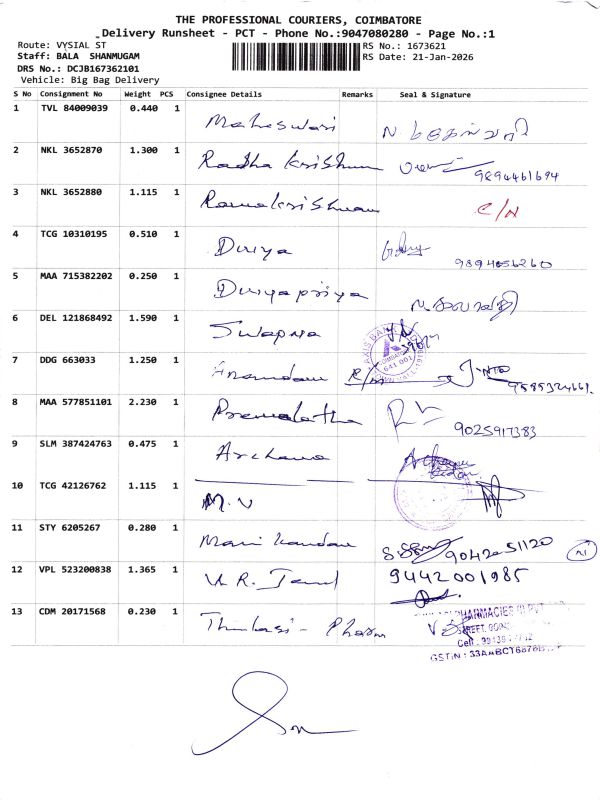 THE PROFESSIONAL COURIERS, COIMBATORE
Delivery Runsheet - PCT - Phone No.:9047080280 - Page No.:1
Route: VYSIAL ST
RS No.: 1673621
Staff: BALA SHANMUGAM
RS Date: 21-Jan-2026
DRS No.: DCJB167362101
Vehicle: Big Bag Delivery
S No Consignment No Weight PCS Consignee Details Remarks Seal & Signature
1 TVL 84009039 0.440 1 Maheswari
2 NKL 3652870 1.300 1 Radha Krishnan 9894461694
3 NKL 3652880 1.115 1 Ramakrishnan C/N
4 TCG 10310195 0.510 1 Divya
5 MAA 715382202 0.250 1 Divyapriya
6 DEL 121868492 1.590 1 Swapna
AXIS BANK
641 001
7 DDG 663033 1.250 1
8 MAA 577851101 2.230 1 Premalatha 9025917383
9 SLM 387424763 0.475 1 Archana
10 TCG 42126762 1.115 1 M.V
11 STY 6205267 0.280 1 Mani Kandan 9042051120
12 VPL 523200838 1.365 1 9442001985
13 CDM 20171568 0.230 1 Thulasi - Pharm